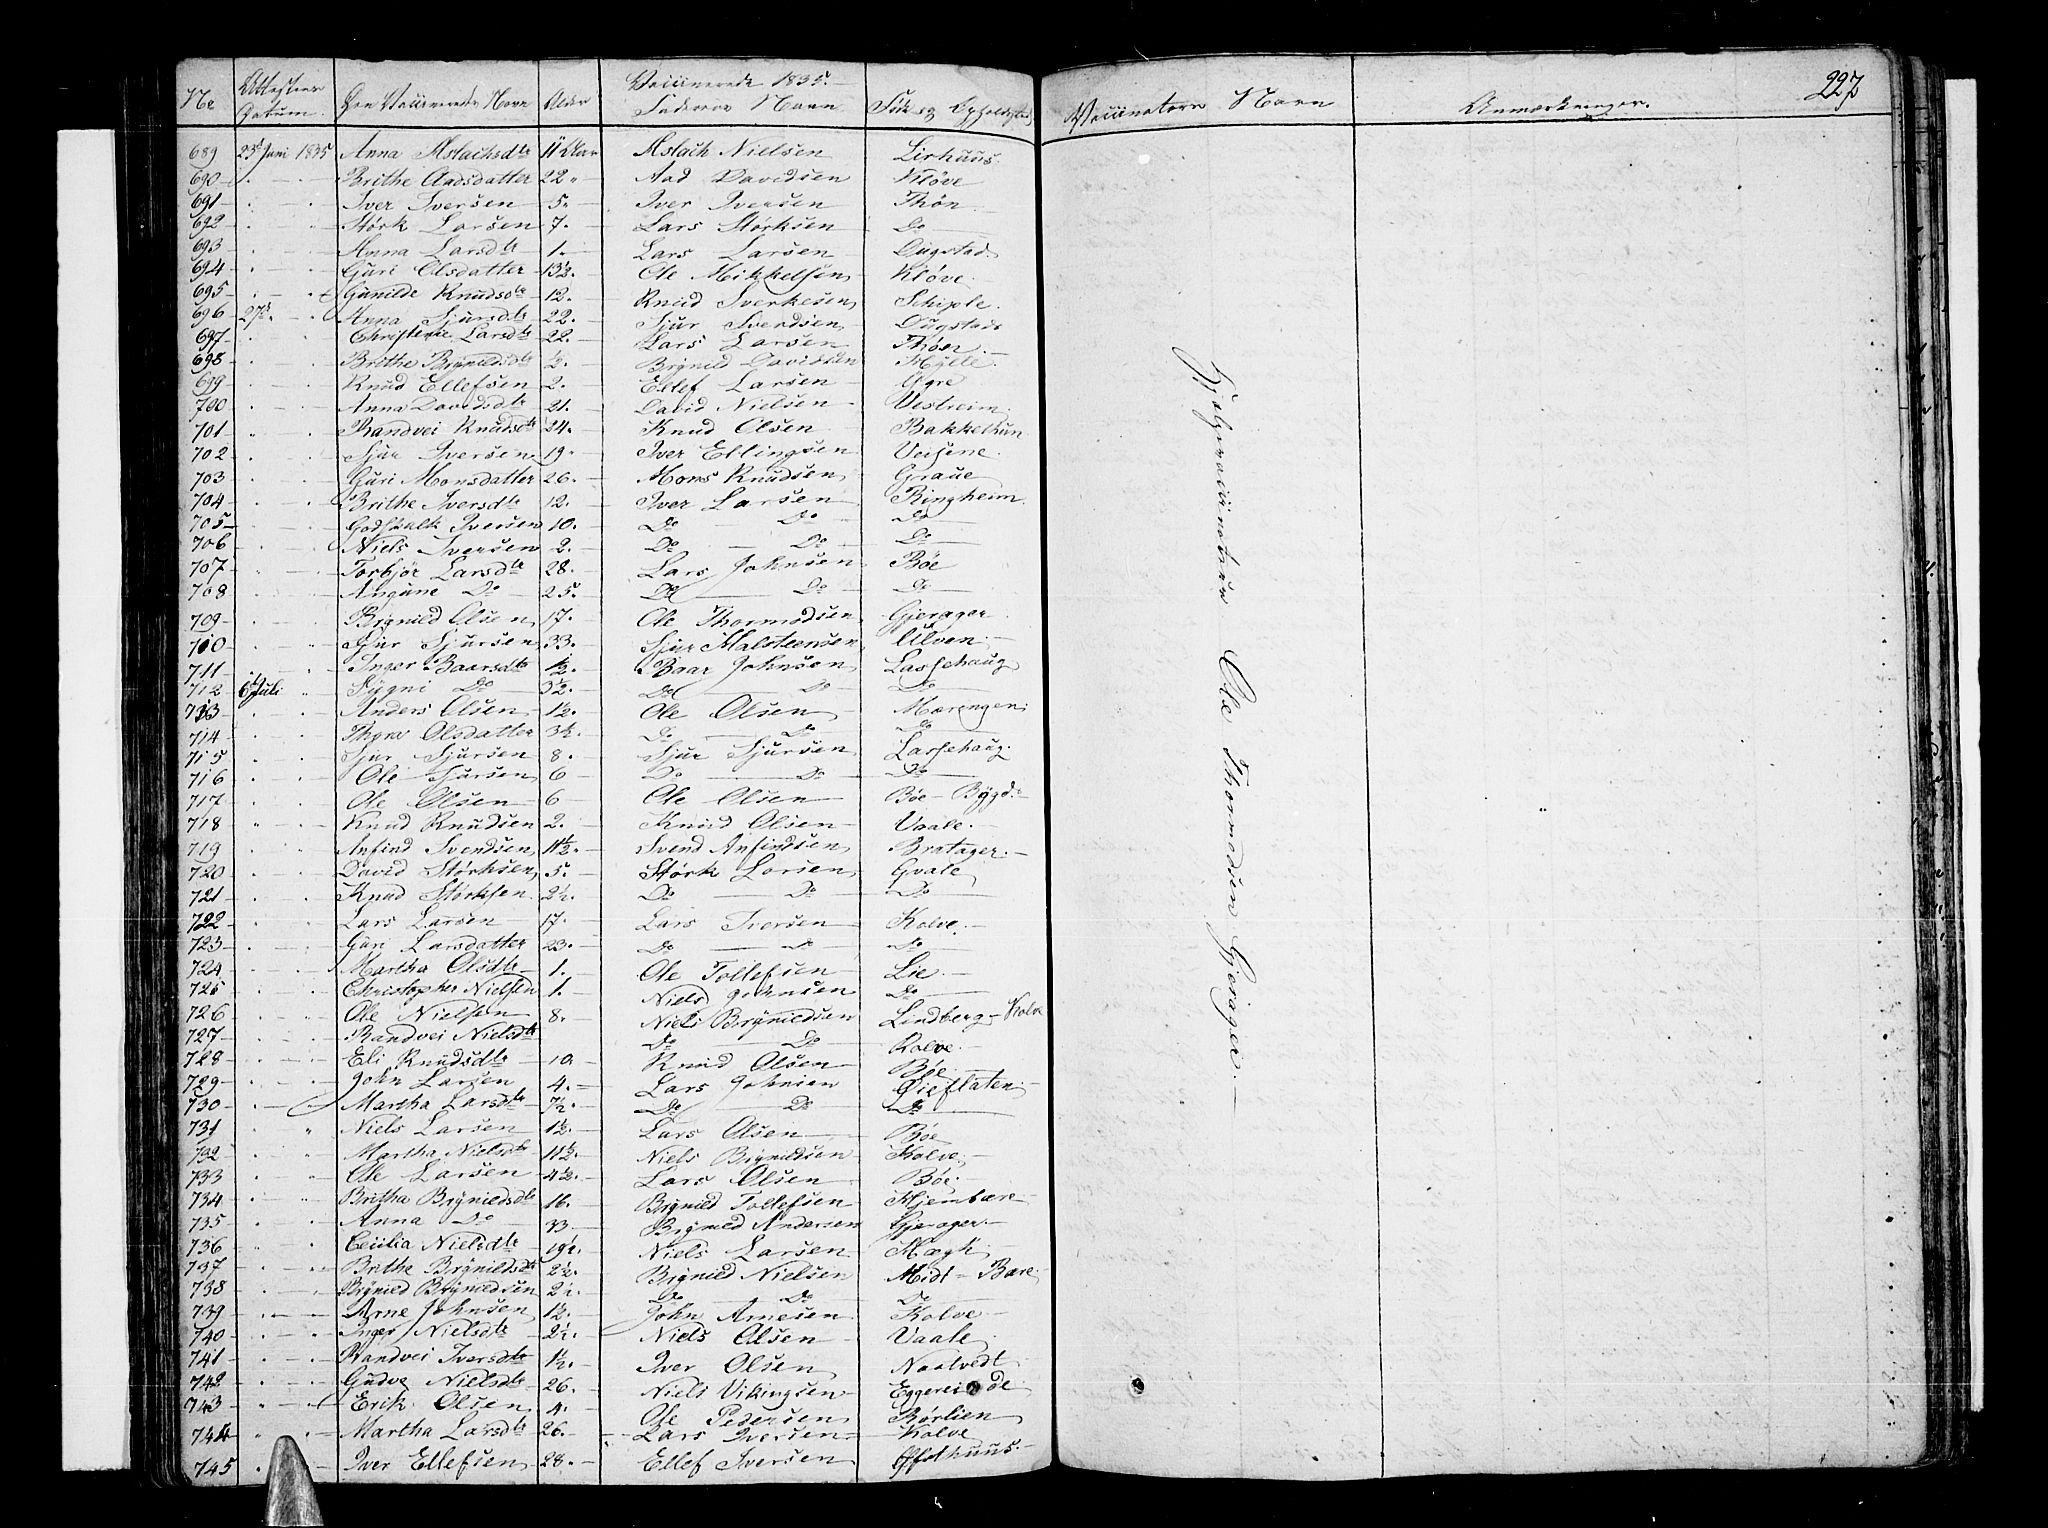 Vaccinerede 1835.
No Attestens Datum. Den Vaccineredes Navn Alder Faderens Navn Vaccinatørs Navn Anmærkninger. 227
689 23d Juni 1835 Anna Aslachsdtr 11 Aar Aslach Nielsen Lirhuus.
690 Brithe Aadsdatter 22 Aad Davidsen Kløve
691 Iver Iversen 5 Iver Iversen Thøn
692 Størk Larsen 7 Lars Størksen Do
693 Anna Larsdtr 1. Lars Larsen Dugstad
694 Guri Olsdatter 13½. Ole Mikkelsen Kløve
695 Gunilde Knudsdtr 12. Knud Schiple.
696 27d Anna Sjursdtr 22. Sjur Svendsen Dugstad
697 Christense Larsdtr 22. Lars Larsen Thøen
698 Brithe Brynildsdtr ½. Brynild Davidsen Hylle
699 Knud Ellefsen 2. Ellef Larsen
700 Anna Davidsdtr 21. David Nielsen Vestreim
701 Randvei Knudsdtr 24. Knud Olsen Bakkethun
702 Sjur Iversen 19 Iver Ellingsen
703 Guri Monsdatter 26. Mons Knudsen Graue
704 Brithe Iversdtr 12. Iver Larsen Ringheim
705 Godskalk Iversen 10. Do Do Do
706 Niels Iversen 2. Do Do Do
707 Torbjør Larsdtr 28. Lars Johnsen Bøe
708 Do 25. Do Do Do
709 Brynild Olsen 17. Ole Thormodsen Gjerager
710 Sjur Sjursen 33. Sjur Halsteensen Ulven
711 Inger Baarsdtr 1½. Baar Johnsen Lassehaug
712 6d Juli Sygni Do 3½. Do Do Do
713 Anders Olsen 1½. Ole Olsen Mæringen
714 Olsdatter 3½. Do Do Do
715 Sjur Sjursen 8. Sjur Sjursen Lassehaug.
716 Ole Sjursen 6 Do Do Do
717 Ole Olsen 6 Ole Olsen Bøe – Bygd.
718 Knud Knudsen 2. Knud Olsen Vaale.
719 Anfind Svendsen 11½. Svend Anfindsen Bratager.
720 David Størksen 5. Størk Larsen Gvale
721 Knud Størksen 2½. Do Do Do
722 Lars Larsen 17. Lars Iversen Kolve.
723 Guri Larsdatter 23. Do Do Do
724 Martha Olsdtr 1. Ole Tollefsen Lie.
725 Christopher Nielsen 1. Niels Johnsen Do
726 Ole Nielsen 8. Niels Brynildsen Lindberg – Kolve
727 Randvei Nielsdtr Do Do Kolve
728 Eli Knudsdtr 10 Knud Olsen Bøe
729 John Larsen 4. Lars Johnsen
730 Martha Larsdtr 7½. Do Do Do
731 Niels Larsen 1½. Lars Olsen Bøe
732 Martha Nielsdtr 11½. Niels Brynildsen Kolve.
733 Ole Larsen 4½. Lars Olsen Bøe
734 Britha Brynildsdtr 16. Brynild Tollefsen Hjembære
735 Anna Do 33 Brynild Andersen Gjerager
736 Cecilia Nielsdtr 19½. Niels Larsen Møgh
737 Brithe Brynildsdtr 2½. Brynild Nielsen Midt – Bære
738 Brynild Brynildsen 2½. Do Do Do
739 Arne Johnsen 1½. John Arnesen Kolve
740 Inger Nielsdtr 2½. Niels Olsen Vaale
741 Randvei Iversdtr 1½. Iver Olsen Naatvedt
742 Gudve Nielsdtr 26. Niels Vikingsen
743 Erik Olsen 4. Ole Pedersen Børlien
744 Martha Larsdtr 26. Lars Iversen Kolve
745 Iver Ellefsen 28. Ellef Iversen
Hjelpevaccinateur Ole Thormodsen Gjerager.